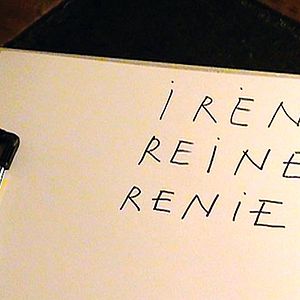 iRÈN
REiNE
RENiE